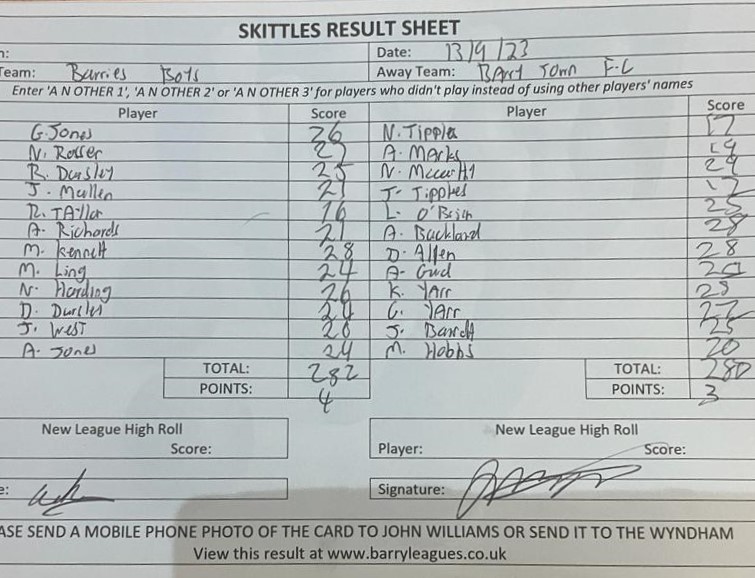 SKITTLES RESULT SHEET
n: Date: 13/9/23
Team: Barries Boys Away Team: BArry Town F.C
Enter 'A N OTHER 1', 'A N OTHER 2' or 'A N OTHER 3' for players who didn't play instead of using other players' names
Player Score Player Score
G. Jones 26 N. Tipples 17
N. Rosser 27 A. MArks 19
R. Dursley 25 N. 29
J. Mullen 21 J. Tipples 17
R. TAylor 16 L. O'Brien 25
A. Richards 21 A. Buckland 28
M. Kennett 28 D. Allen 28
M. Ling 24 A.
N. Harding 26 K. YArr
D. Dursley G. YArr
J. West 20 J. Barrett 25
A. Jones 24 M. Hobbs 20
TOTAL: 282 TOTAL: 280
POINTS: 4 POINTS: 3
New League High Roll New League High Roll
Score: Player: Score:
e: Signature:
ASE SEND A MOBILE PHONE PHOTO OF THE CARD TO JOHN WILLIAMS OR SEND IT TO THE WYNDHAM
View this result at www.barryleagues.co.uk